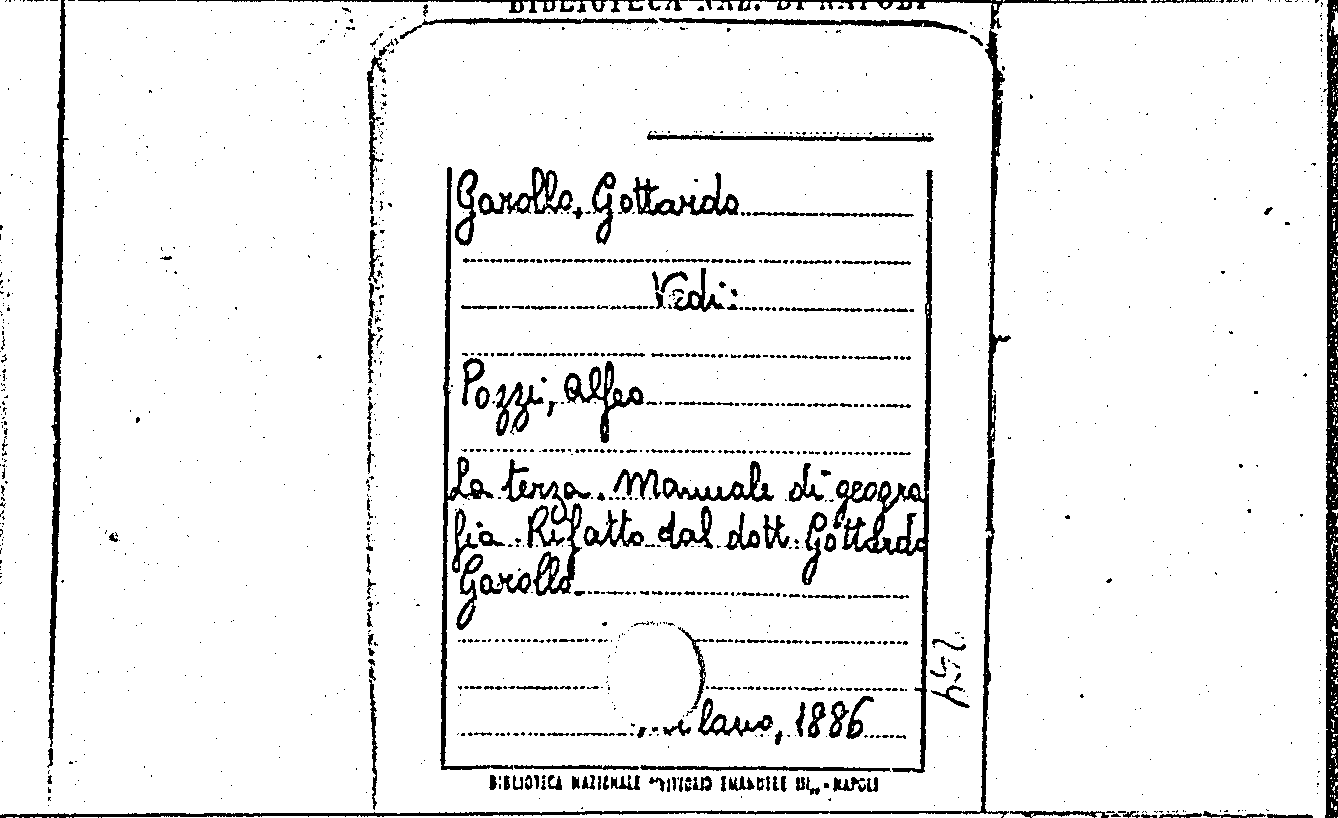 BIBLIOTECA NAZ. DI NAPOLI
Garollo, Gottardo
Vedi:
Pozzi, Alfeo
La terza. Manuale di geogra
fia. Rifatto dal dott. Gottardo
Garollo.
Milano, 1886
BIBLIOTECA NAZIONALE "VITTORIO EMANUELE III" - NAPOLI